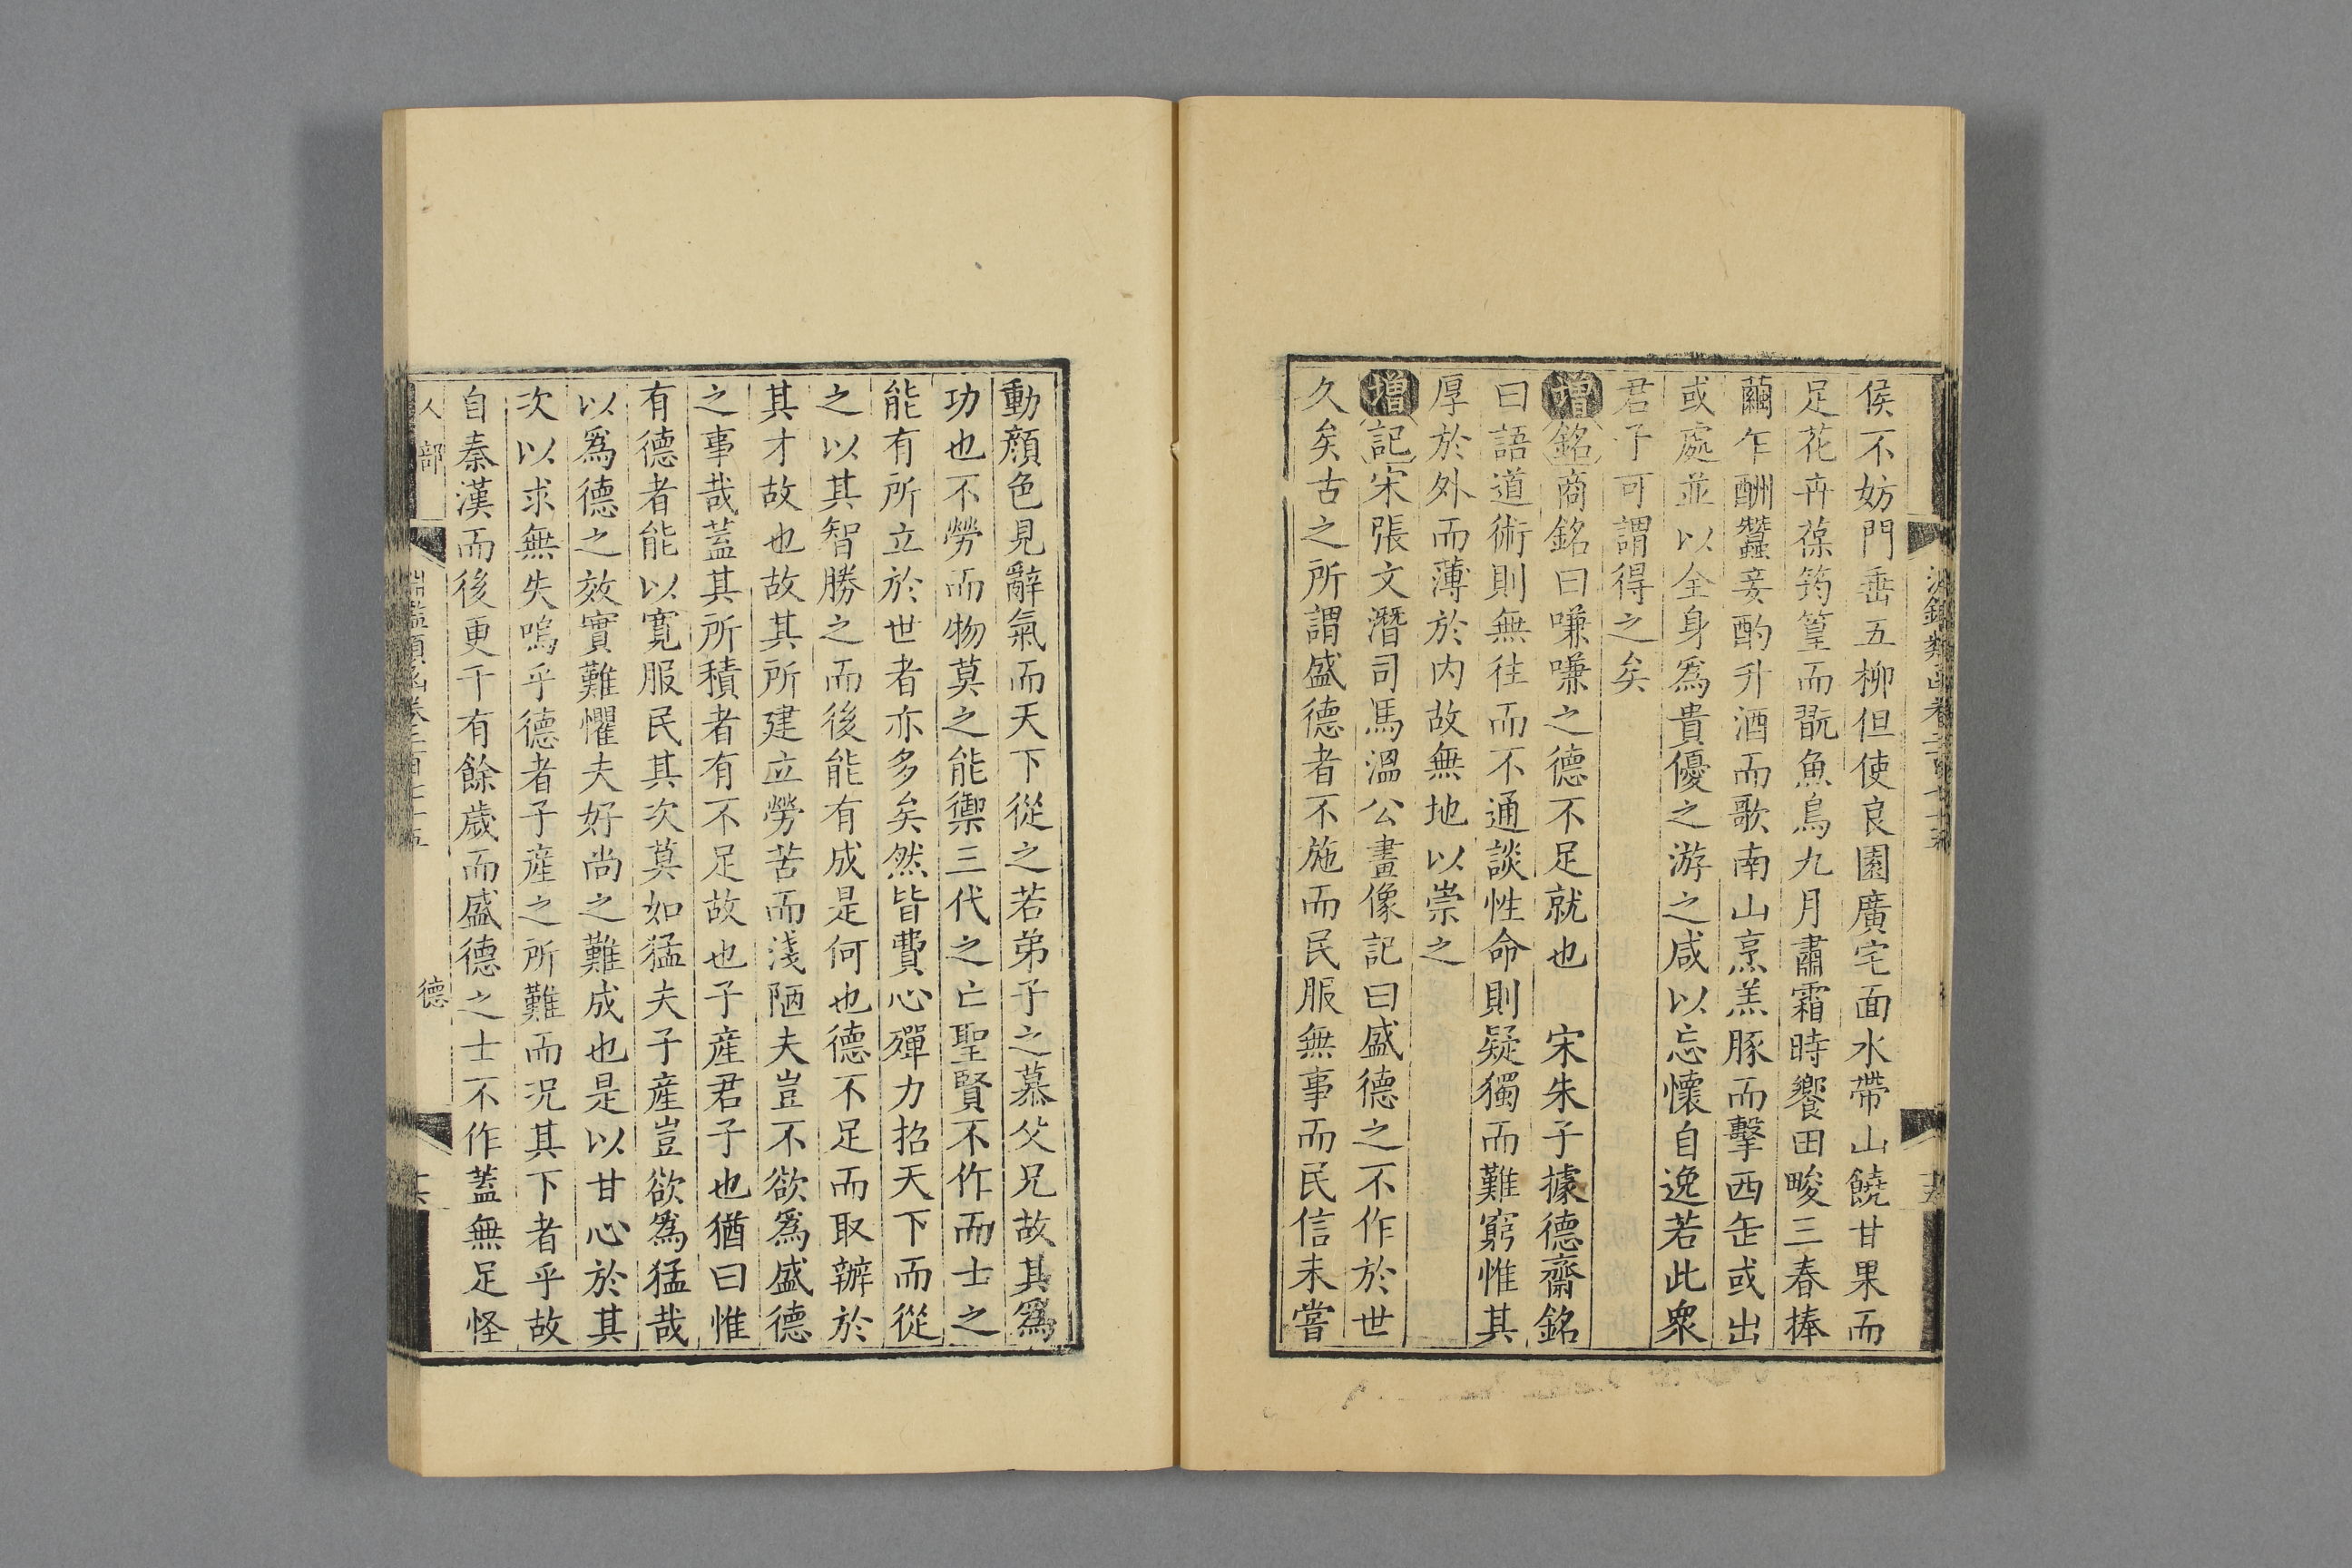 侯不妨門垂五柳但使良園廣宅面水帶山饒甘果而
足花卉葆筠篁而翫魚鳥九月肅霜時饗田畯三春捧
繭乍酬蠶妾酌升酒而歌南山烹羔豚而擊西缶或出
或處並以全身爲貴優之游之咸以忘懷自逸若此衆
君子可謂得之矣
增銘商銘曰嗛嗛之德不足就也 宋朱子據德齋銘
曰語道術則無往而不通談性命則疑獨而難窮惟其
厚於外而薄於内故無地以崇之
增記宋張文潛司馬溫公畫像記曰盛德之不作於世
久矣古之所謂盛德者不施而民服無事而民信未嘗
動顔色見辭氣而天下從之若弟子之慕父兄故其爲
功也不勞而物莫之能禦三代之亡聖賢不作而士之
能有所立於世者亦多矣然皆費心殫力招天下而從
之以其智勝之而後能有成是何也德不足而取辦於
其才故也故其所建立勞苦而淺陋夫豈不欲爲盛德
之事哉蓋其所積者有不足故也子產君子也猶曰惟
有德者能以寛服民其次莫如猛夫子產豈欲爲猛哉
以爲德之效實難懼夫好尚之難成也是以甘心於其
次以求無失嗚乎德者子產之所難而况其下者乎故
自秦漢而後更千有餘歲而盛德之士不作蓋無足怪
人部 淵鑑類函卷二百七十五 德